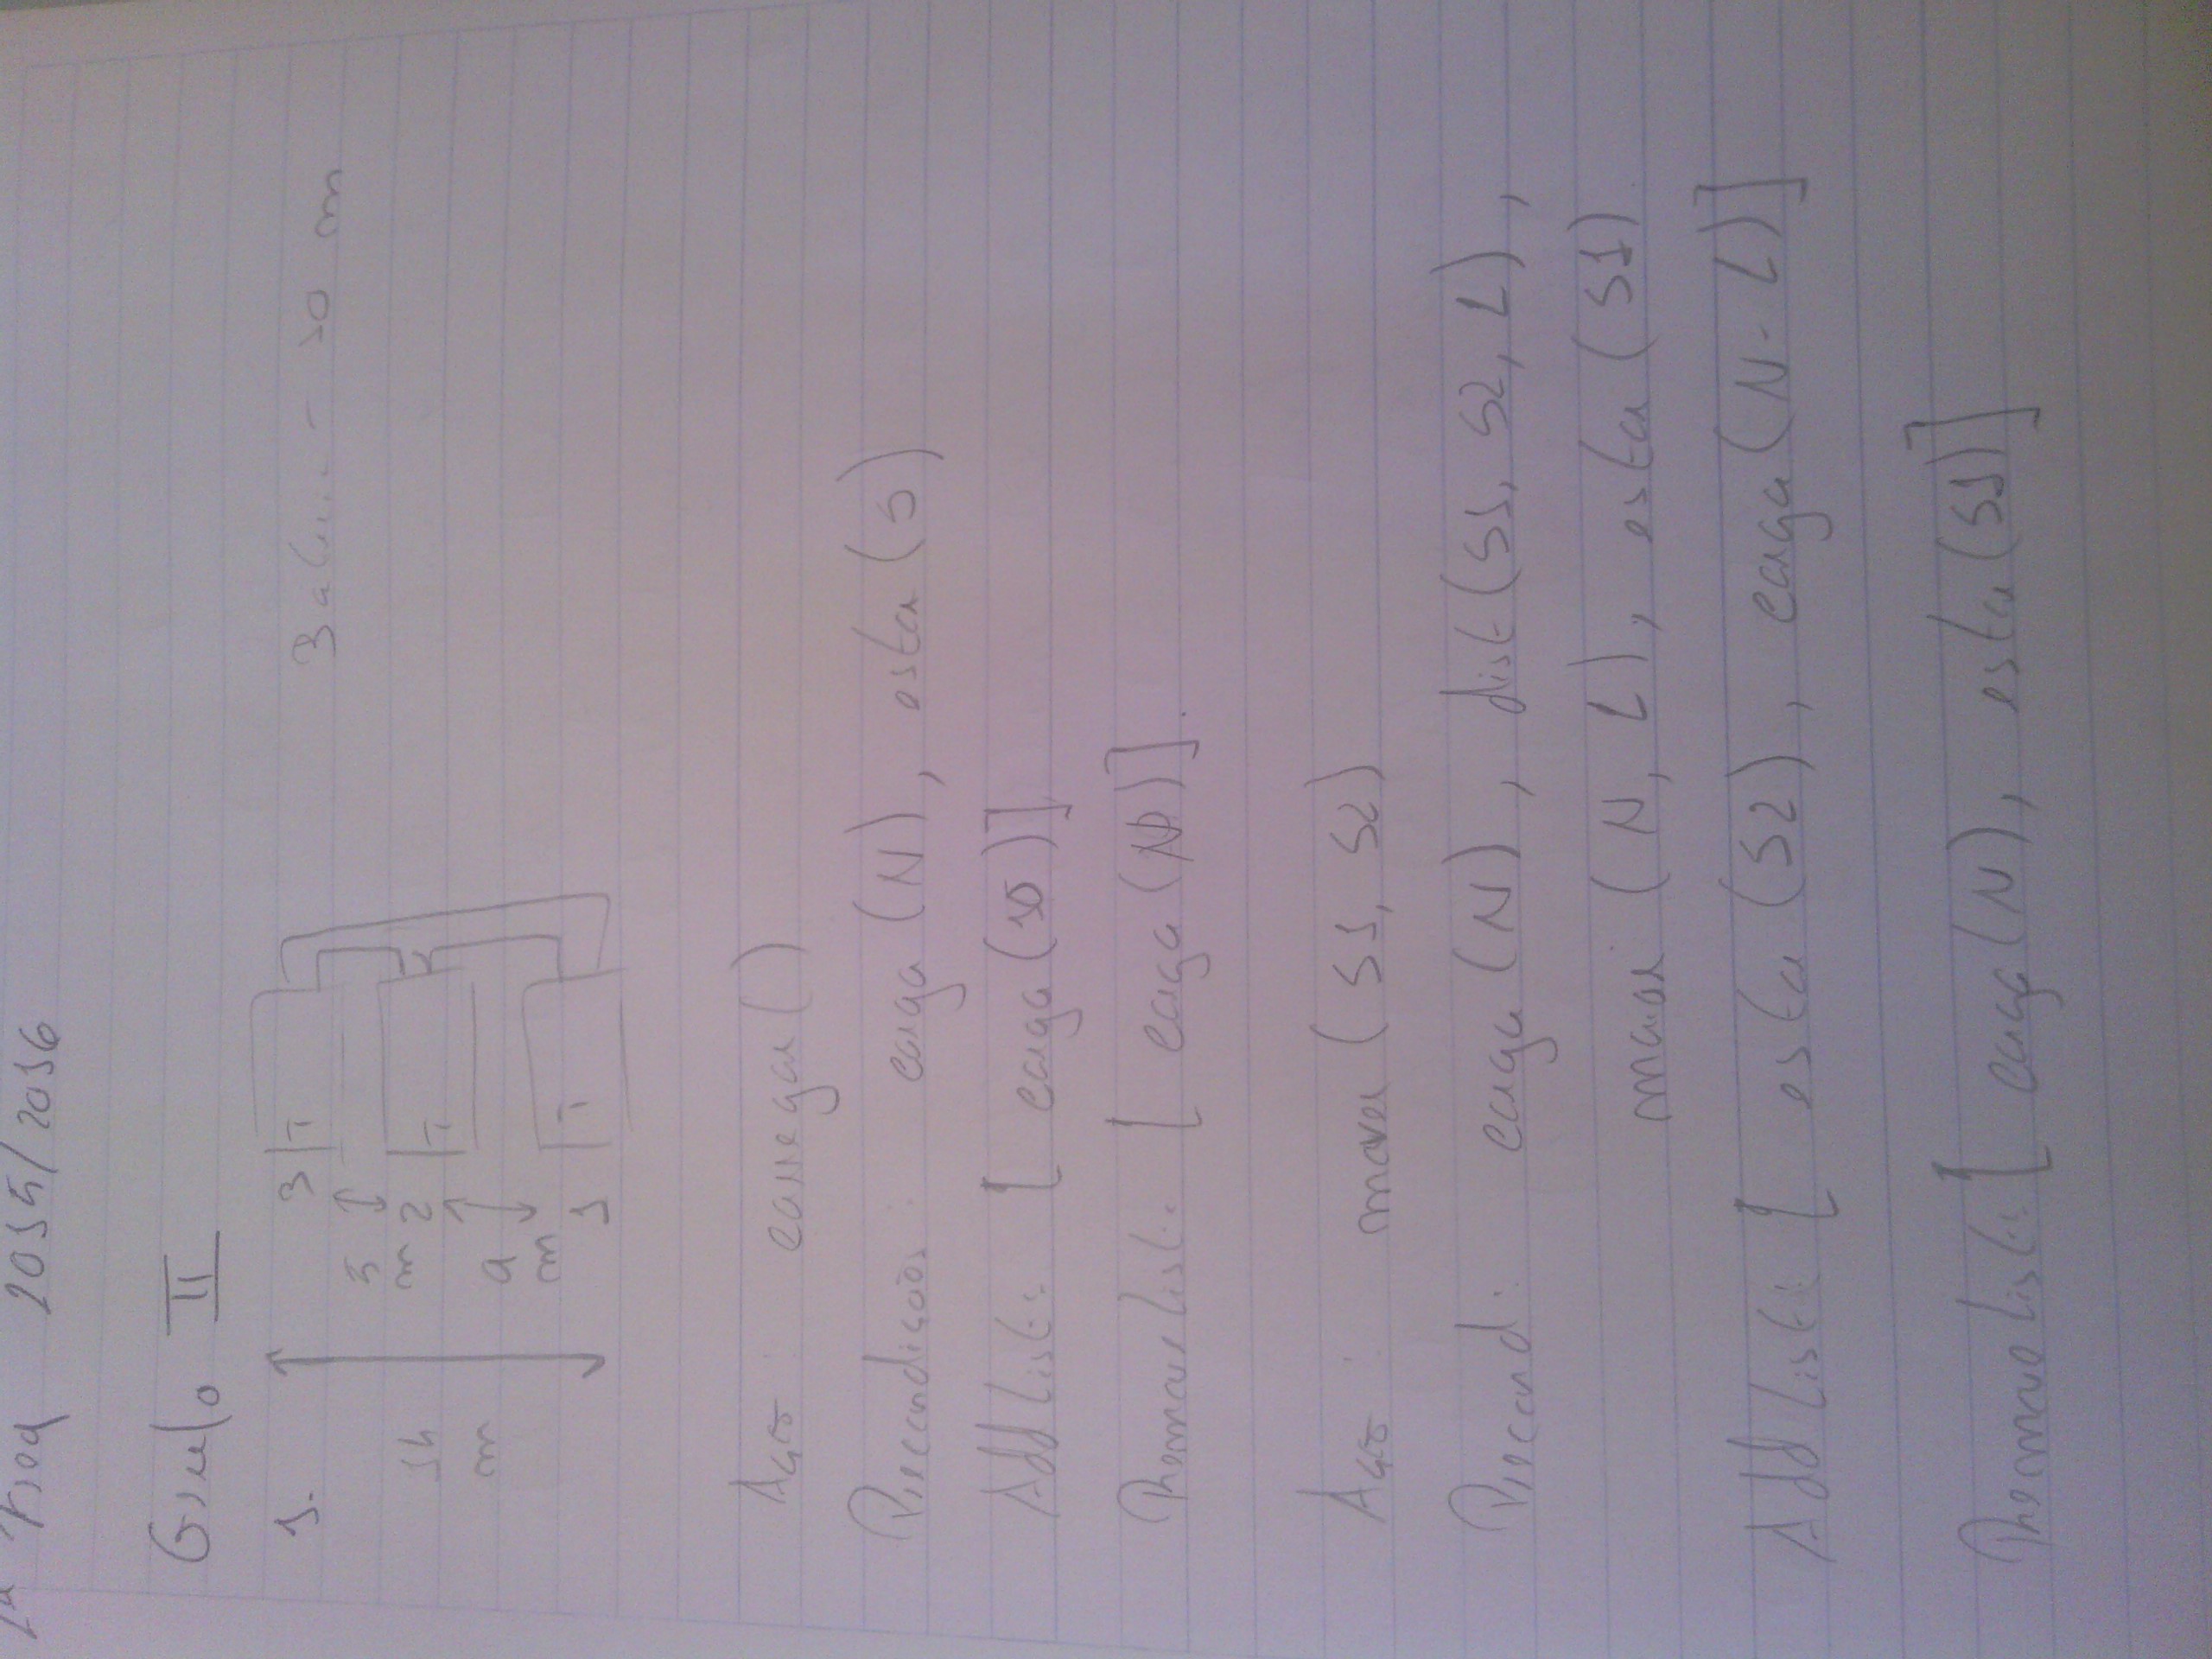 2015/2016
Grupo II
1.
3
5 m
2
9 m
1
14 m
10 m
Ação: carregar()
Precondições: carga(N), estar(S)
Add List: [carga(10)]
Remove List: [carga(N)].
Ação: mover(S1, S2)
Precond: carga(N), dist(S1, S2, L),
maior(N, L), estar(S1)
Add List: [esta(S2), carga(N-L)]
Remove List: [carga(N), esta(S1)]